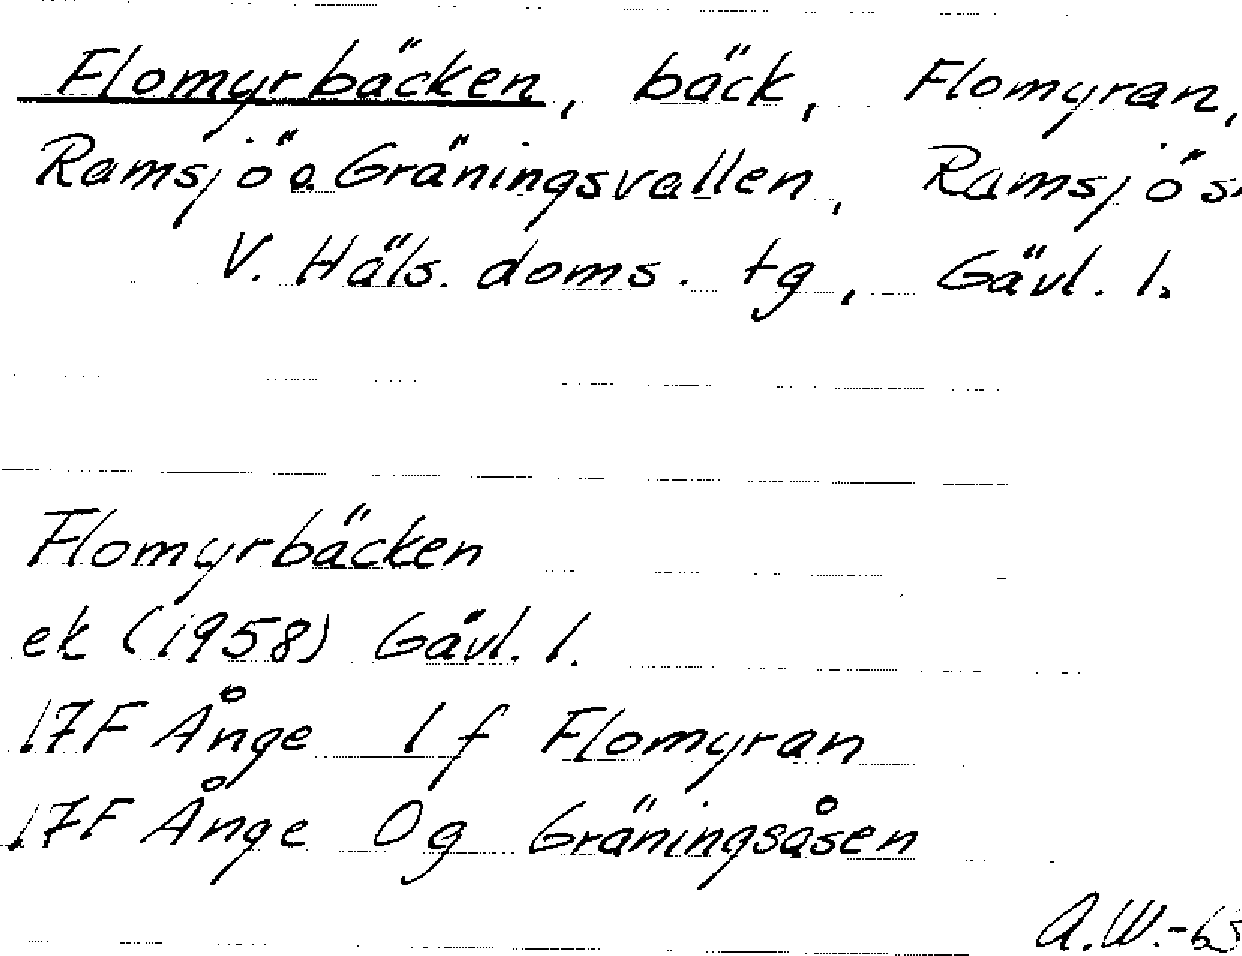 Flomyrbäcken, bäck, Flomyran,
Ramsjö o. Gräningsvallen, Ramsjö s:
V. Häls. doms. tg, Gävl. l.
Flomyrbäcken
ek (1958) Gävl. l.
17F Ånge 1f Flomyran
17F Ånge 0g Gräningsåsen
A.W.-63